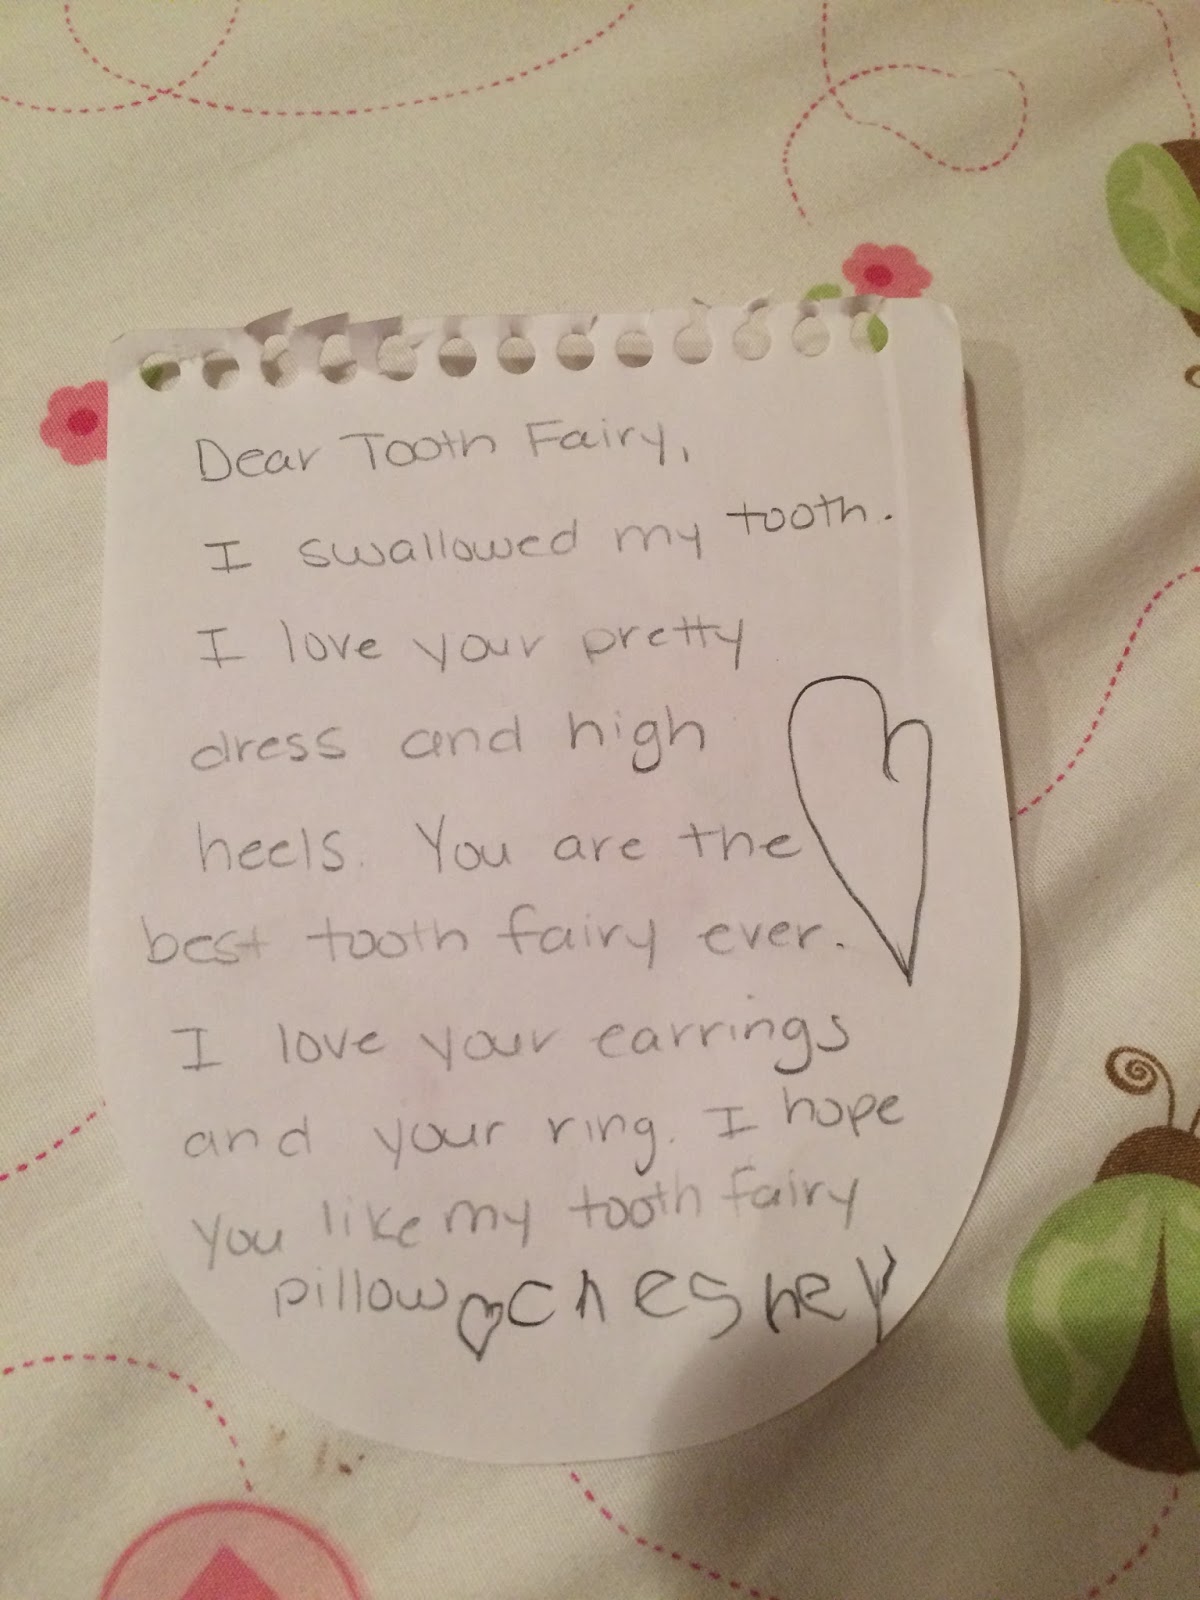 Dear Tooth Fairy,
I swallowed my tooth.
I love your pretty
dress and high
heels. You are the
best tooth fairy ever.
I love your earrings
and your ring. I hope
you like my tooth fairy
pillow chesney